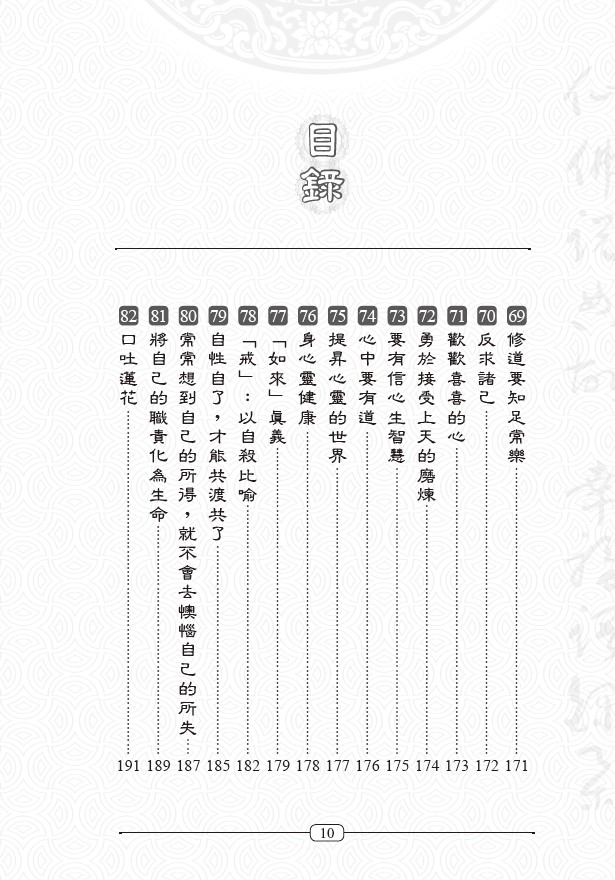 目錄
69 修道要知足常樂 171
70 反求諸己 172
71 歡歡喜喜的心 173
72 勇於接受上天的磨煉 174
73 要有信心生智慧 175
74 心中要有道 176
75 提昇心靈的世界 177
76 身心靈健康 178
77 「如來」真義 179
78 「戒」：以自殺比喻 182
79 自性自了，才能共渡共了 185
80 常常想到自己的所得，就不會去懊惱自己的所失 187
81 將自己的職責化為生命 189
82 口吐蓮花 191
10